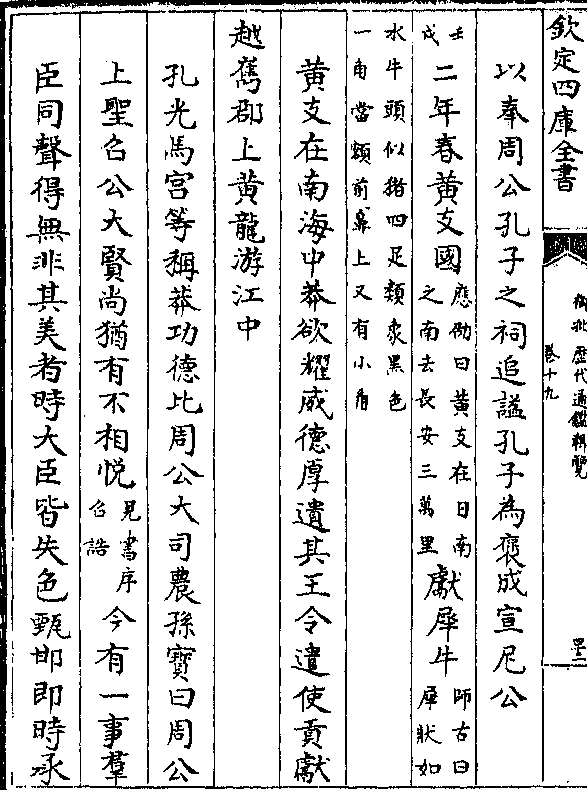 欽定四庫全書
御批歷代通鑑輯覽
卷十九
以奉周公孔子之祠追諡孔子為褒成宣尼公
壬戌二年春黃支國應劭曰黃支在日南之南去長安三萬里獻犀牛師古曰犀狀如
水牛頭似猪四足類象黑色一角當額前鼻上又有小角
黃支在南海中莽欲耀威德厚遺其王令遣使貢獻
越嶲郡上黃龍游江中
孔光馬宮等稱莽功德比周公大司農孫寶曰周公
上聖召公大賢尚猶有不相悅見書序召誥今有一事羣
臣同聲得無非其美者時大臣皆失色甄邯即時承